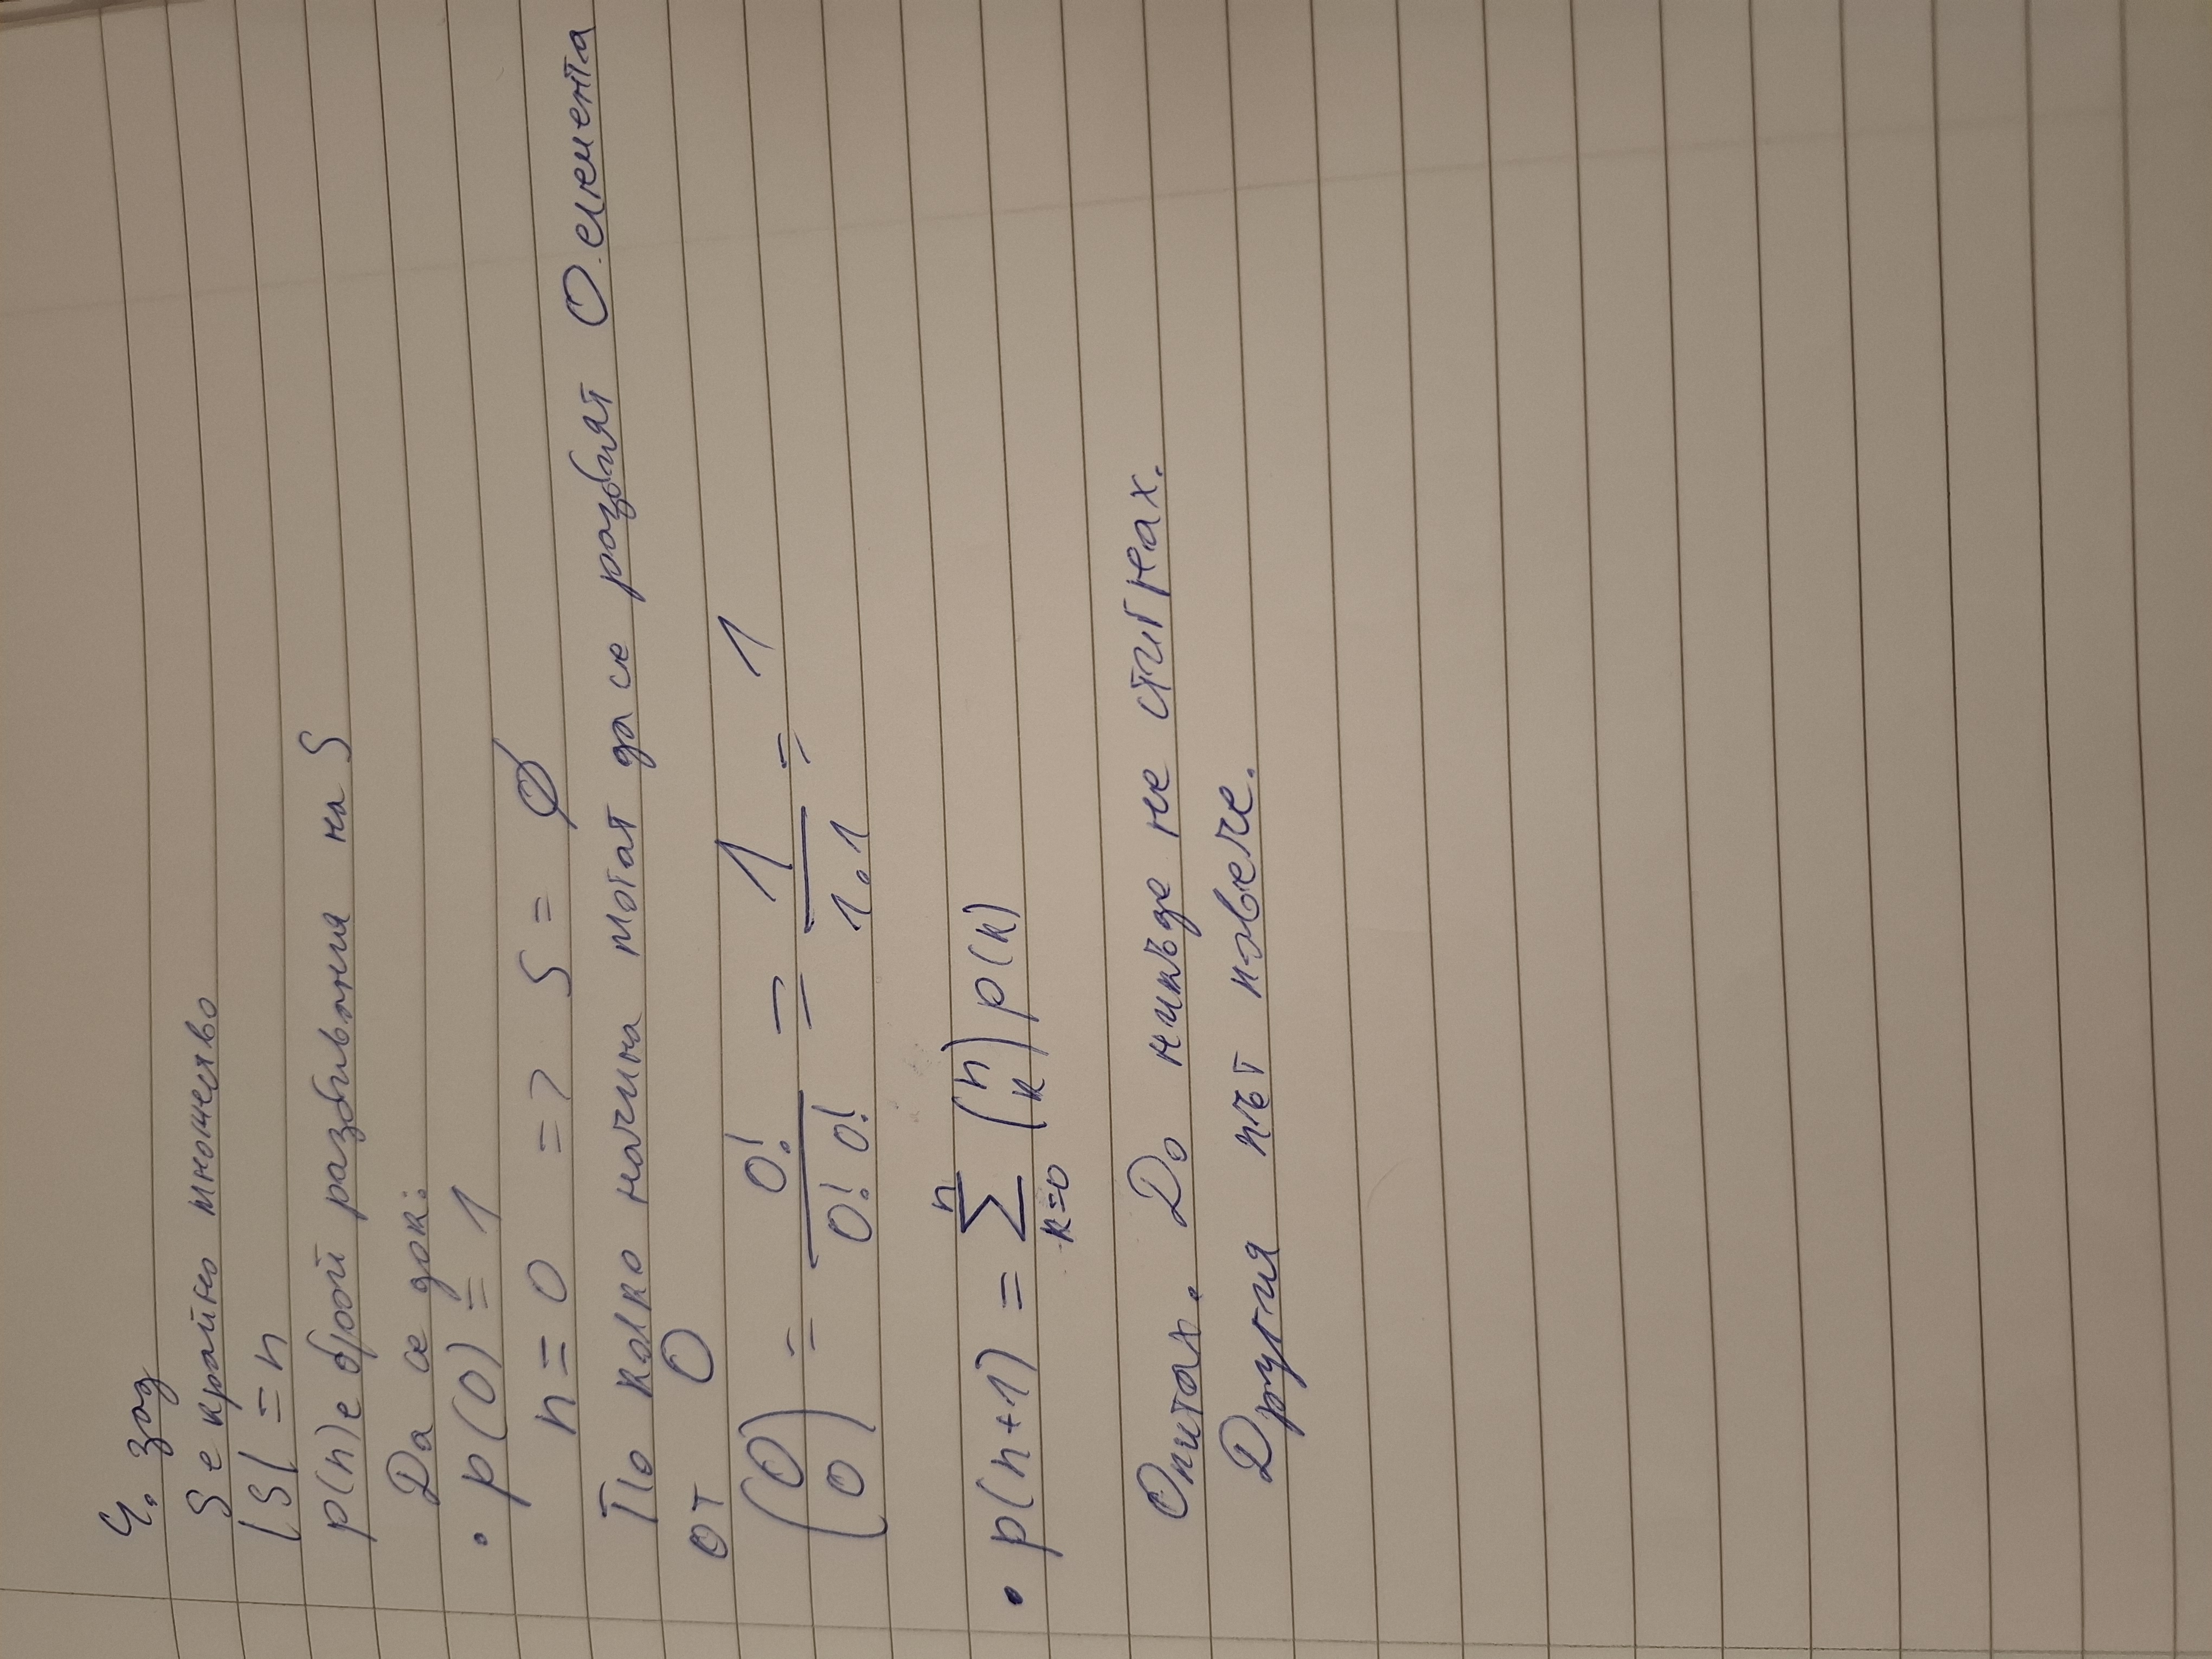 4. зад
S е крайно множество
|S| = n
p(n) е брой разбивания на S
Да се док:
• p(0) = 1
n = 0 => S = ∅
По колко начина могат да се разбият 0 елемента
от 0
(0 0) = 0! / 0! 0! = 1 / 1.1 = 1
• p(n+1) = n ∑ k=0 (n k) p(k)
Опитах. До никъде не стигнах.
Другия път повече.